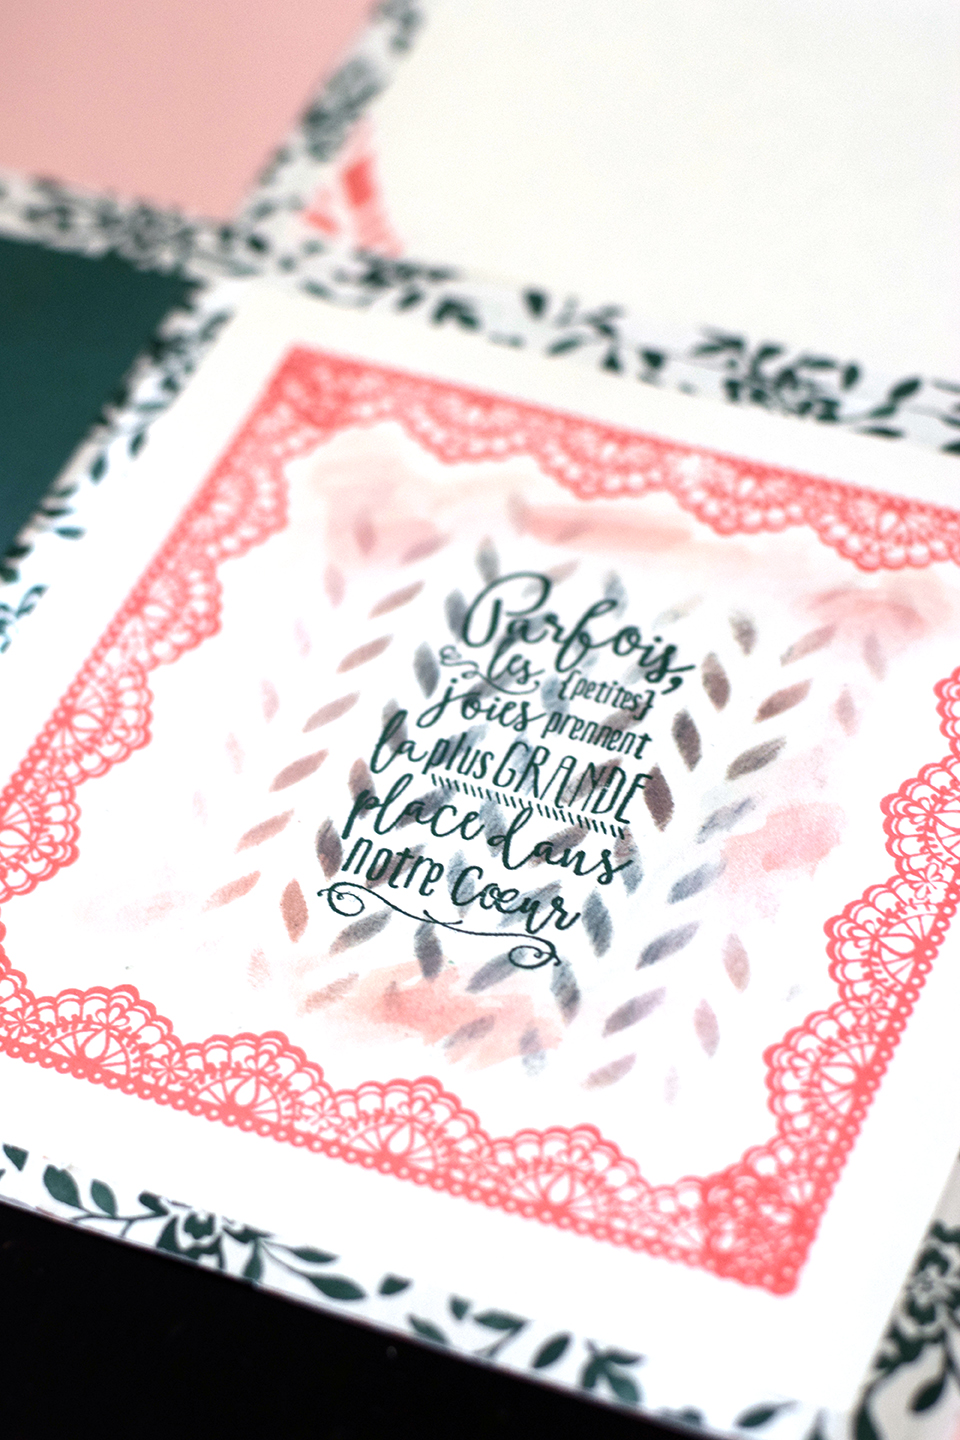 Parfois,
les {petites}
joies prennent
la plus GRANDE
place dans
notre Coeur